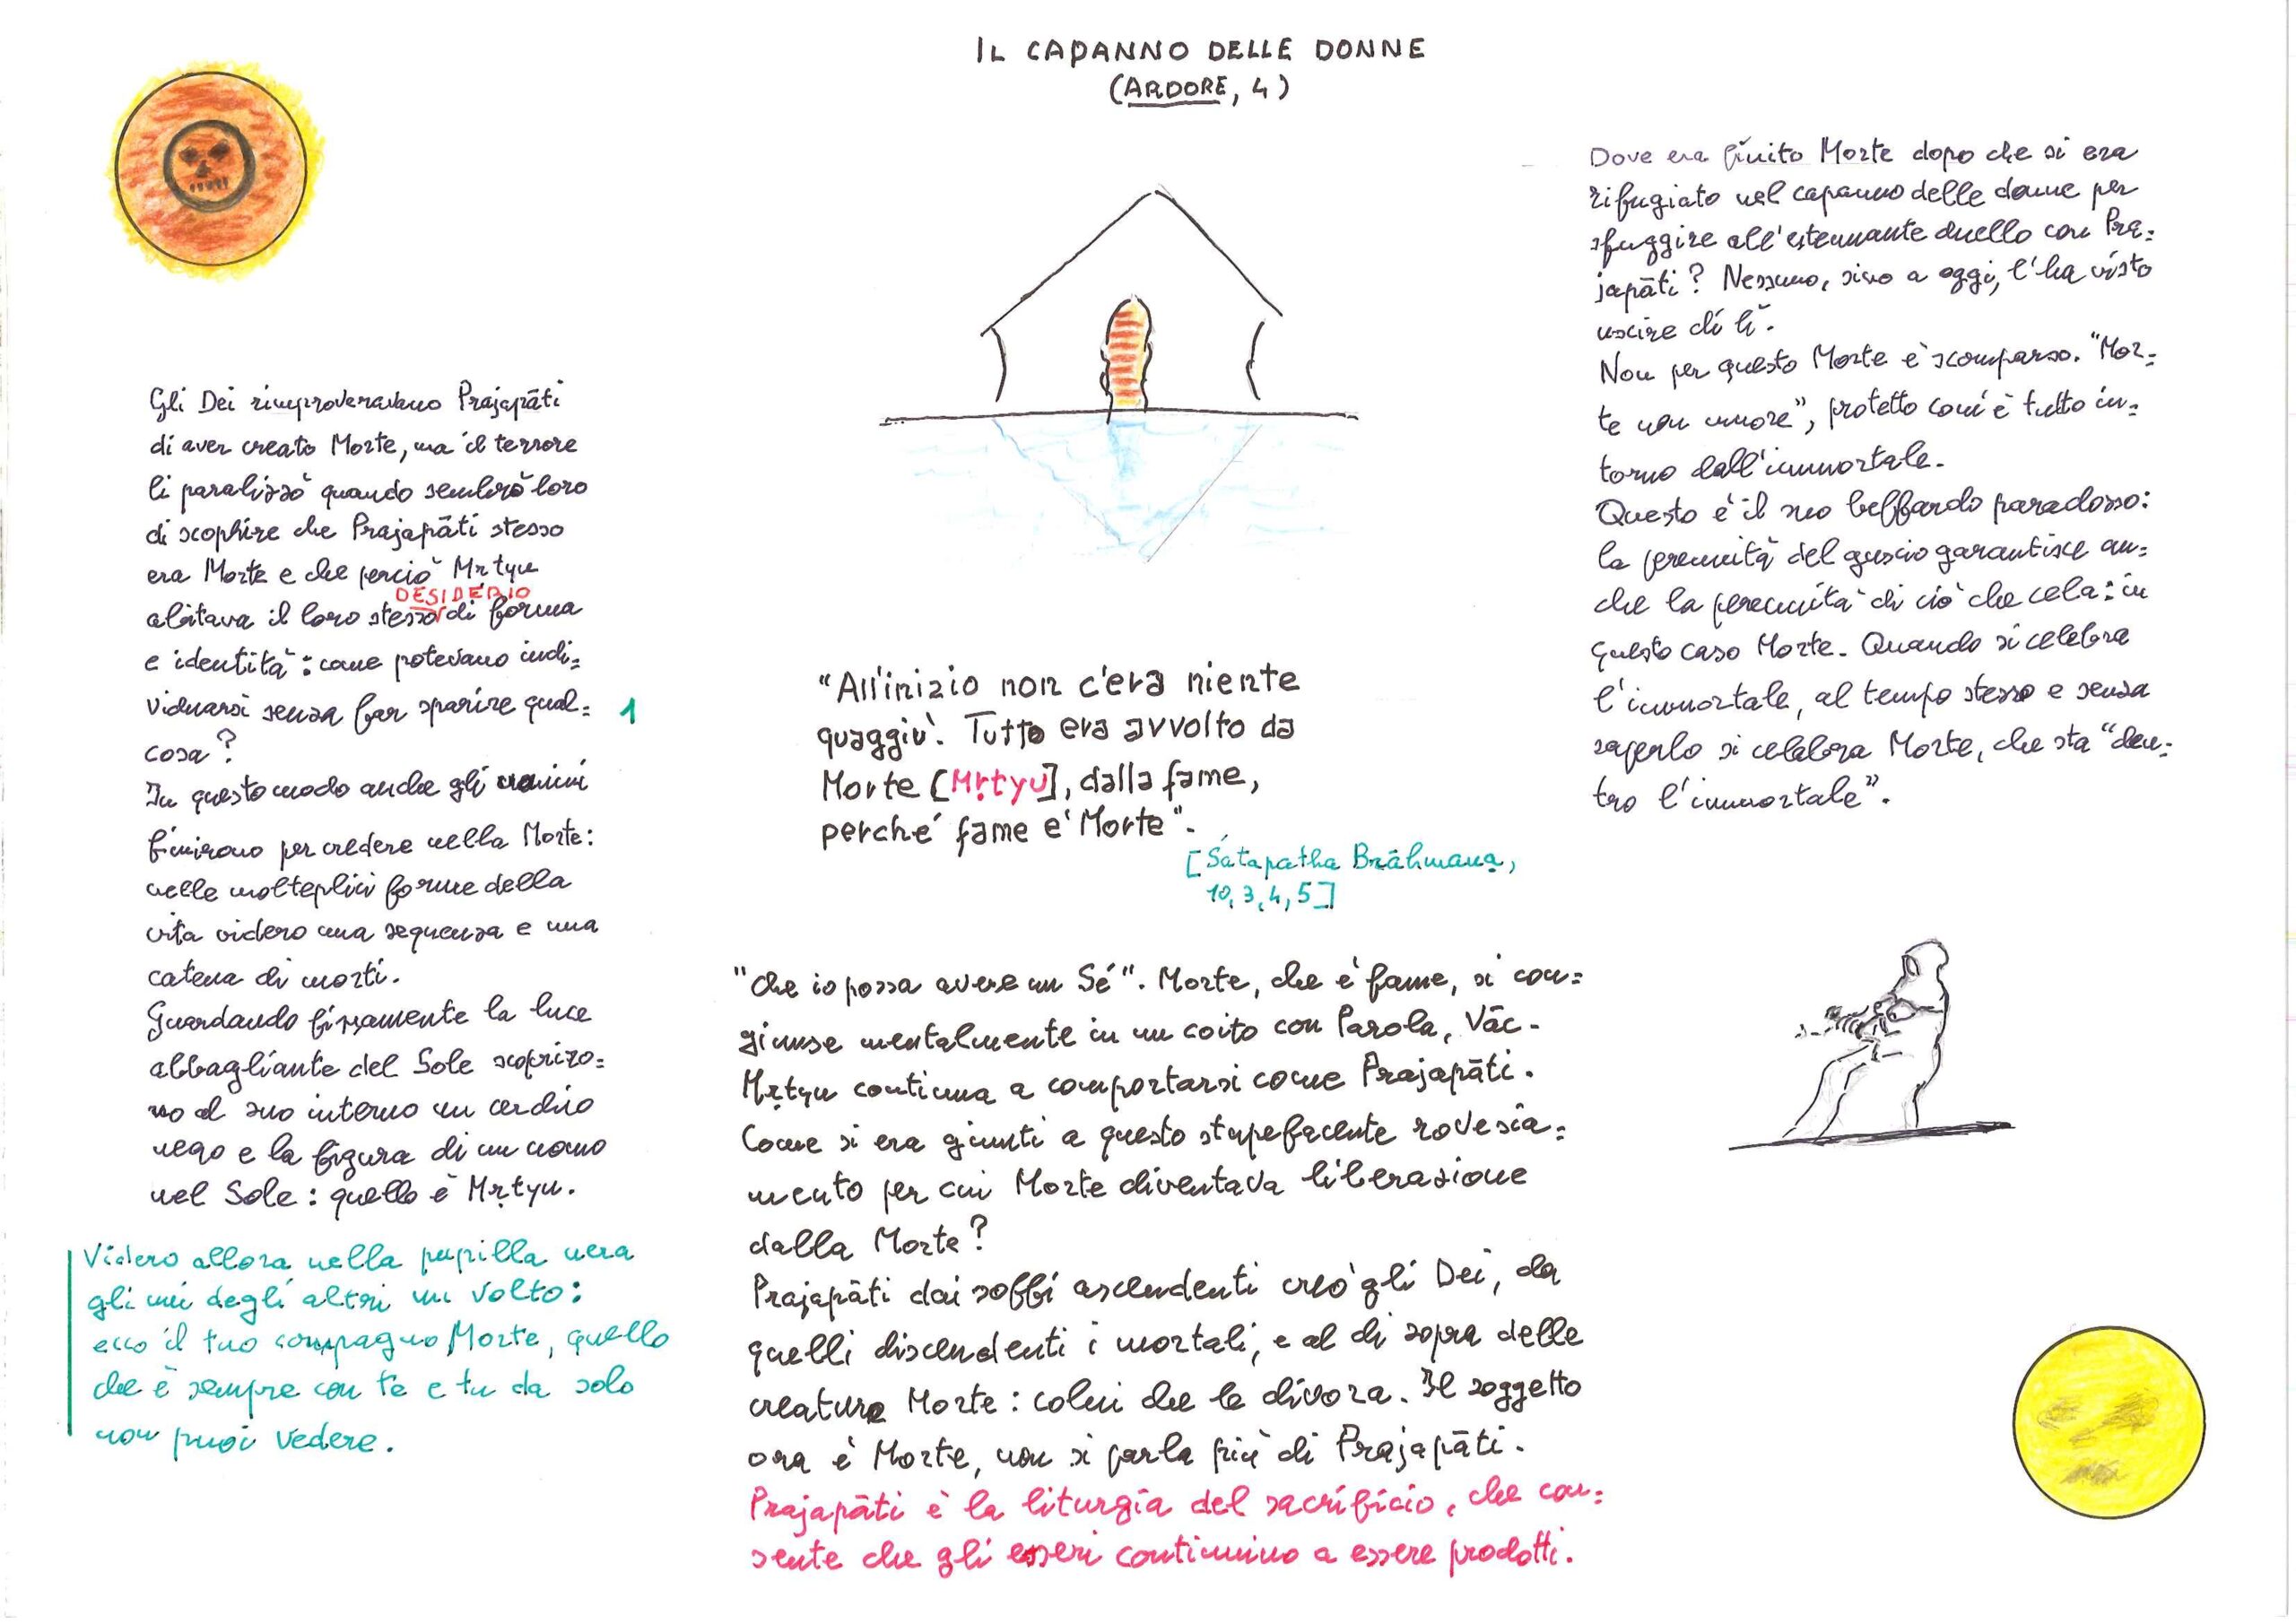 IL CAPANNO DELLE DONNE
(ARDORE, 4)
Gli Dei rimproveravano Prajapāti
di aver creato Morte, ma il terrore
li paralizzò quando sembrò loro
di scoprire che Prajapāti stesso
era Morte e che perciò Mṛtyu
DESIDERIO
abitava il loro stesso di forma
e identità: come potevano indi=
viduarsi senza far sparire qual=
cosa?
1
In questo modo anche gli uomini
finirono per credere nella Morte:
nelle molteplici forme della
vita videro una sequenza e una
catena di morti.
Guardando fissamente la luce
abbagliante del Sole scopriro=
no al suo interno un cerchio
nero e la figura di un uomo
nel Sole: quello è Mṛtyu.
Videro allora nella pupilla nera
gli uni degli altri un volto:
ecco il tuo compagno Morte, quello
che è sempre con te e tu da solo
non puoi vedere.
"All'inizio non c'era niente
quaggiù. Tutto era avvolto da
Morte [Mṛtyu], dalla fame,
perché fame è Morte".
[Śatapatha Brāhmaṇa,
10, 3, 4, 5]
"Che io possa avere un Sé". Morte, che è fame, si con=
giunse mentalmente in un coito con Parola, Vāc.
Mṛtyu continua a comportarsi come Prajapāti.
Come si era giunti a questo stupefacente rovescia=
mento per cui Morte diventava liberazione
dalla Morte?
Prajapāti dai soffi ascendenti creò gli Dei, da
quelli discendenti i mortali, e al di sopra delle
creature Morte: colui che le divora. Il soggetto
ora è Morte, non si parla più di Prajapāti.
Prajapāti è la liturgia del sacrificio, che con=
sente che gli esseri continuino a essere prodotti.
Dove era finito Morte dopo che si era
rifugiato nel capanno delle donne per
sfuggire all'estenuante duello con Pra=
japāti? Nessuno, sino a oggi, l'ha visto
uscire di lì.
Non per questo Morte è scomparso. "Mor=
te non muore", protetto com'è tutto in=
torno dall'immortale.
Questo è il suo beffardo paradosso:
la perennità del guscio garantisce an=
che la perennità di ciò che cela: in
questo caso Morte. Quando si celebra
l'immortale, al tempo stesso e senza
saperlo si celebra Morte, che sta "den=
tro l'immortale".